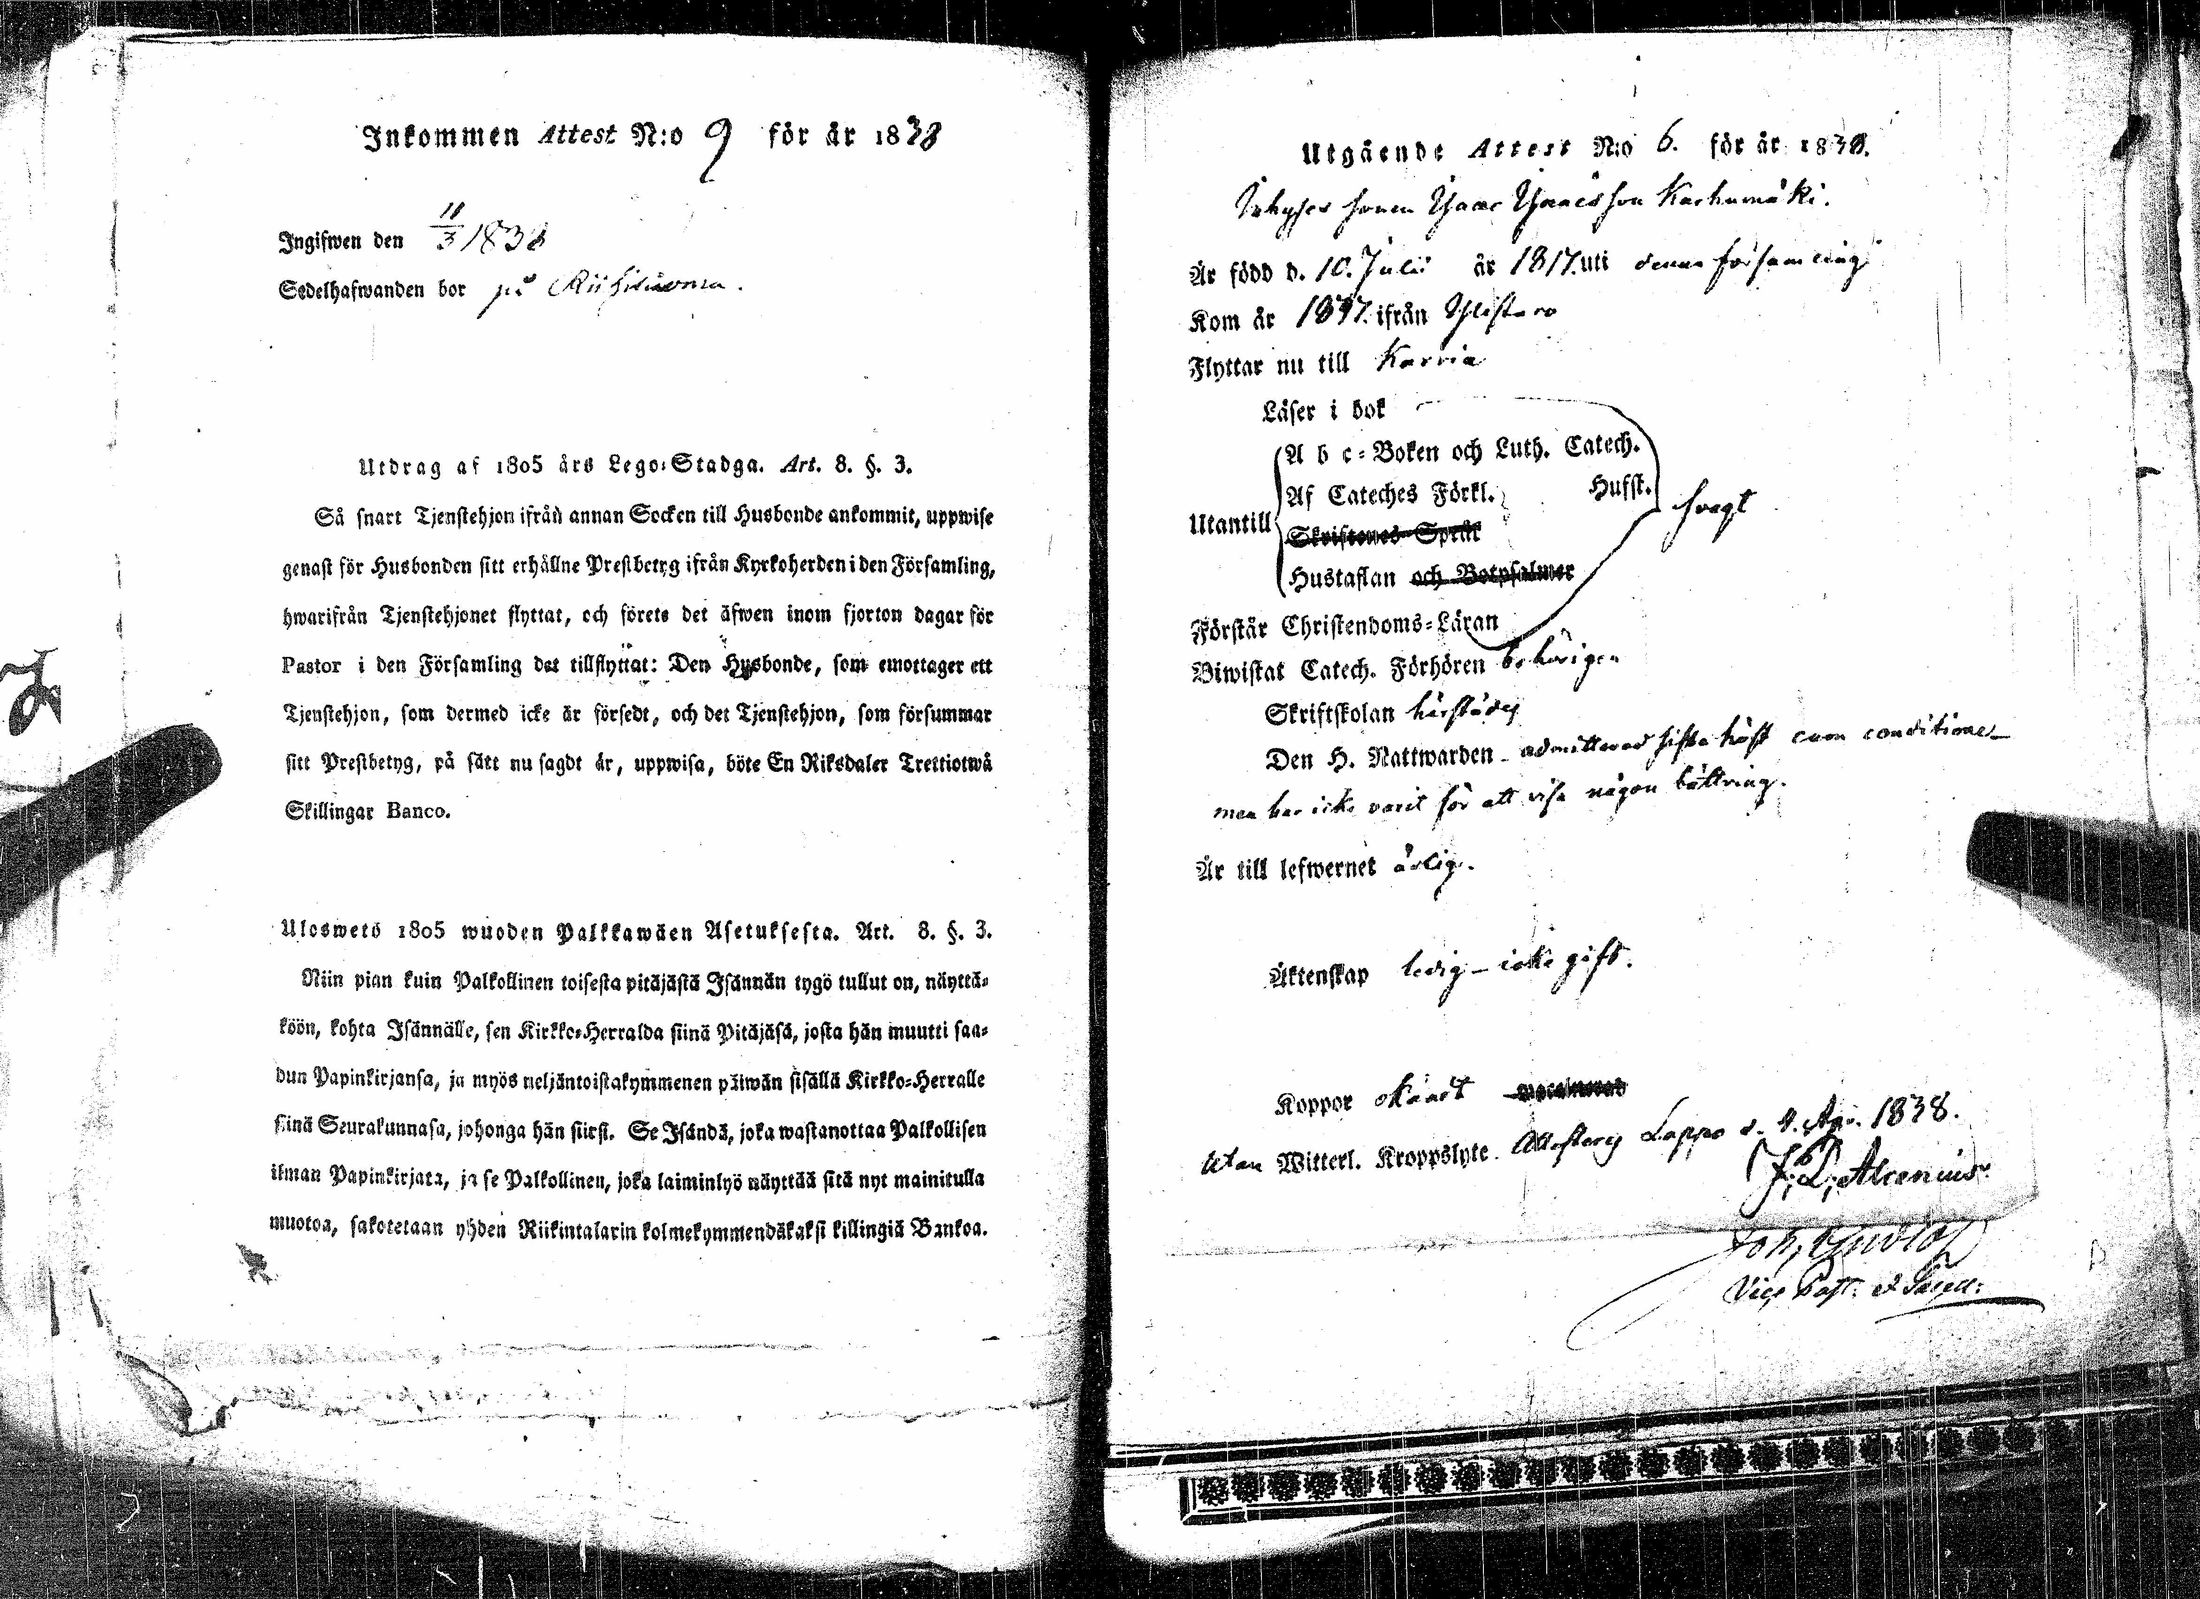 Inkommen Attest N:o 9 för år 1838
Ingifwen den 11/3 1838
Sedelhafwanden bor på
Utdrag af 1805 års Lego-Stadga. Art. 8. §. 3.
Så snart Tjenstehjon ifrån annan Socken till Husbonde ankommit, uppwise
genast för Husbonden sitt erhållne Prestbetyg ifrån Kyrkoherden i den Församling,
hwarifrån Tjenstehjonet flyttat, och förete det äfwen inom fjorton dagar för
Pastor i den Församling det tillflyttat: Den Husbonde, som emottager ett
Tjenstehjon, som dermed icke är försedt, och det Tjenstehjon, som försummar
sitt Prestbetyg, på sätt nu sagdt är, uppwisa, böte En Riksdaler Trettiotwå
Skillingar Banco.
Uloswetö 1805 wuoden Palkkawäen Asetuksesta. Art. 8. §. 3.
Niin pian kuin Palkollinen toisesta pitäjästä Isännän tygö tullut on, näyttä-
köön, kohta Isännälle, sen Kirkko-Herralda siinä Pitäjäsä, josta hän muutti saa-
dun Papinkirjansa, ja myös neljäntoistakymmenen päiwän sisällä Kirkko-Herralle
siinä Seurakunnasa, johonga hän siirsi. Se Isändä, joka wastanottaa Palkollisen
ilman Papinkirjata, ja se Palkollinen, joka laiminlyö näyttää sitä nyt mainitulla
muotoa, sakotetaan yhden Riikintalarin kolmekymmendäkaksi killingiä Bankoa.
Utgående Attest N:o 6. för år 1838.
sonen Isaac Isaacsson Karhumäki.
Är född d. 10. Julii år 1817. uti denna församling
Kom år 1837. ifrån Ylistaro
Flyttar nu till Karvia
Läser i bok
A b c-Boken och Luth. Catech.
Af Cateches Förkl. Hufst.
Utantill svagt
Skriftenes Språk
Hustaflan och Botpsalmer
Förstår Christendoms-Läran
Biwistat Catech. Förhören behörigen
Skriftskolan härstädes
Den H. Nattwarden - admitterad sista höst cum conditione -
men har icke varit för att visa någon bättring.
Är till lefwernet ärlig.
Äktenskap ledig - icke gift.
Koppor okändt
utan Witterl. Kroppslyte. Attesterar Lappo d. 4. Apr. 1838.
J. L. Alcenius.
Joh.
Vice Past: et Sacell: